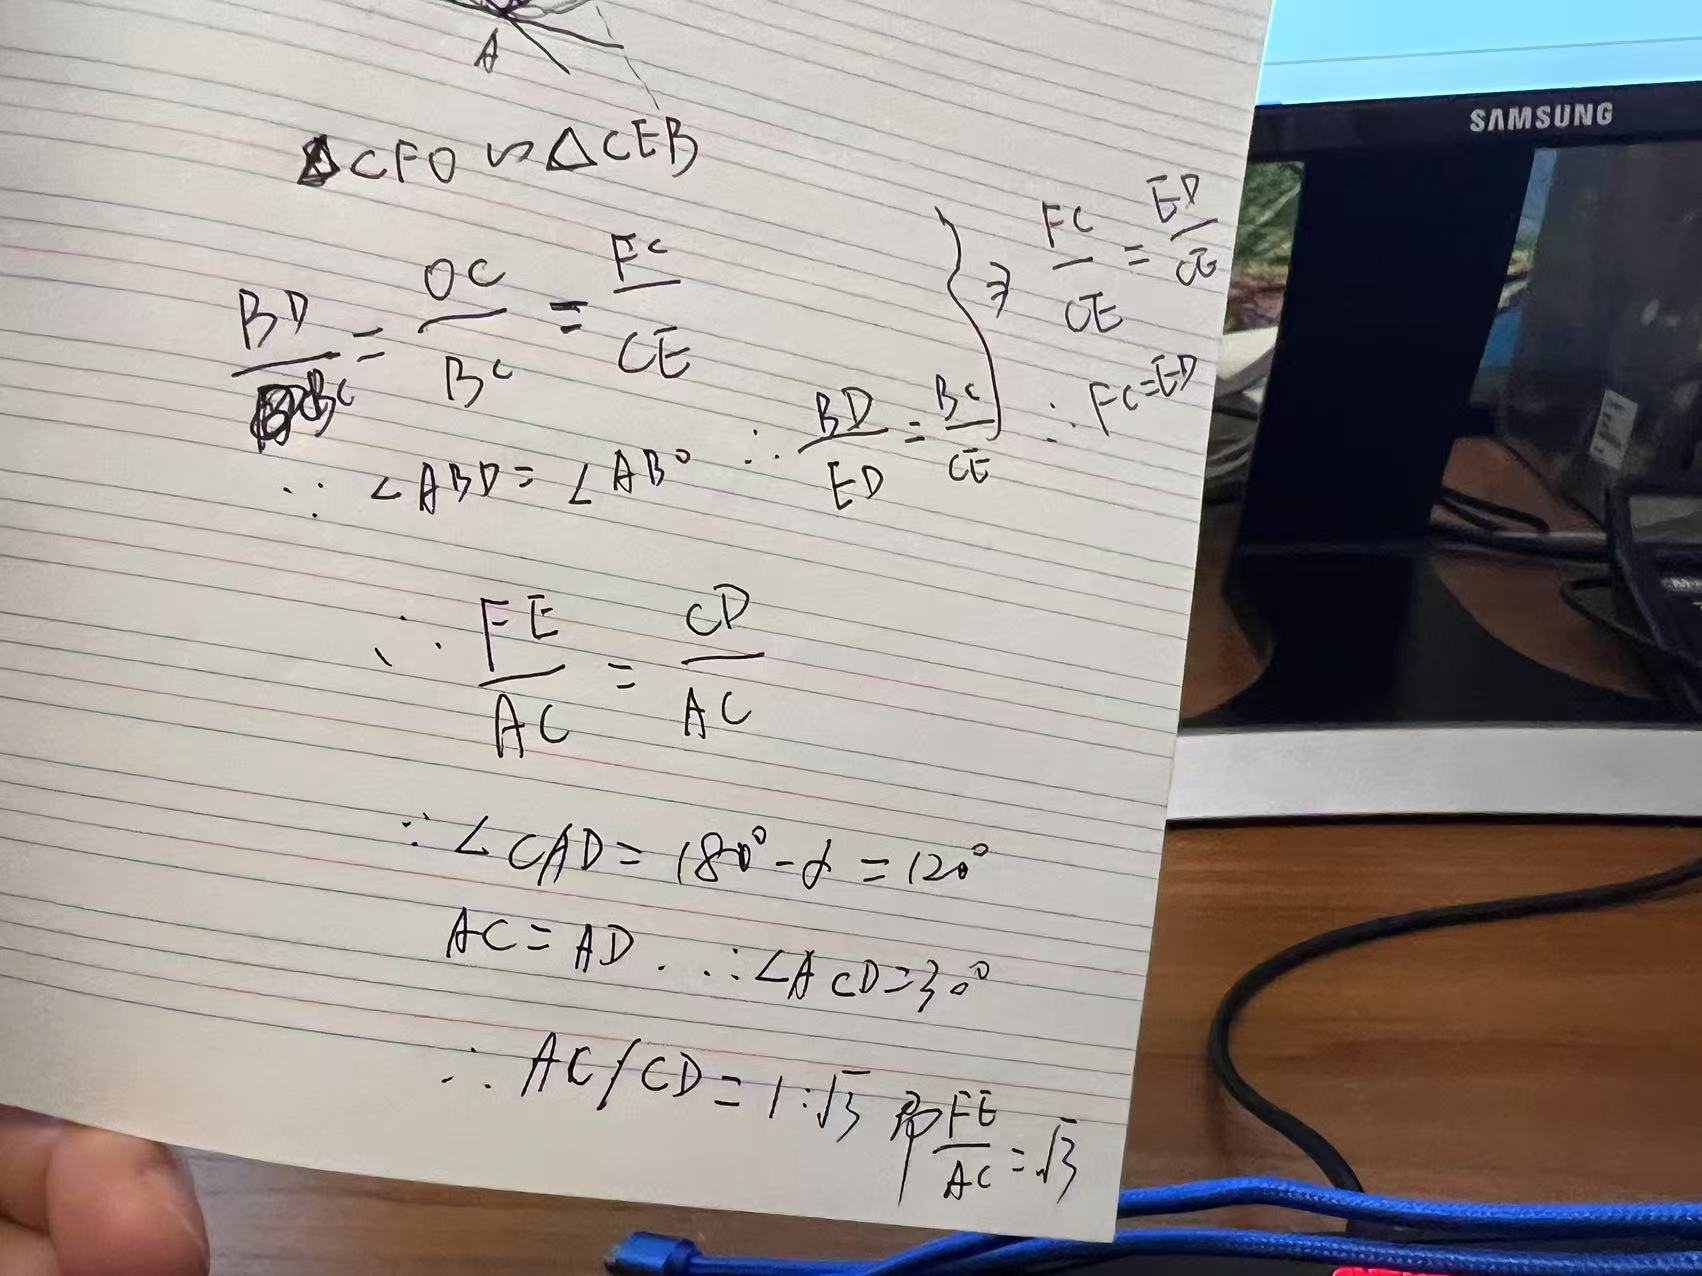 SAMSUNG
A
△CFO ∽ △CEB
BD/BC = OC/BC = FC/CE
∵ ∠ABD = ∠ABO ∴ BD/ED = BC/CE
⇒ FC/CE = ED/CE
∴ FC=ED
∴ FE/AC = CD/AC
∵ ∠CAD = 180° - α = 120°
AC = AD . ∴ ∠ACD = 30°
∴ AC/CD = 1:√3 即 FE/AC = √3